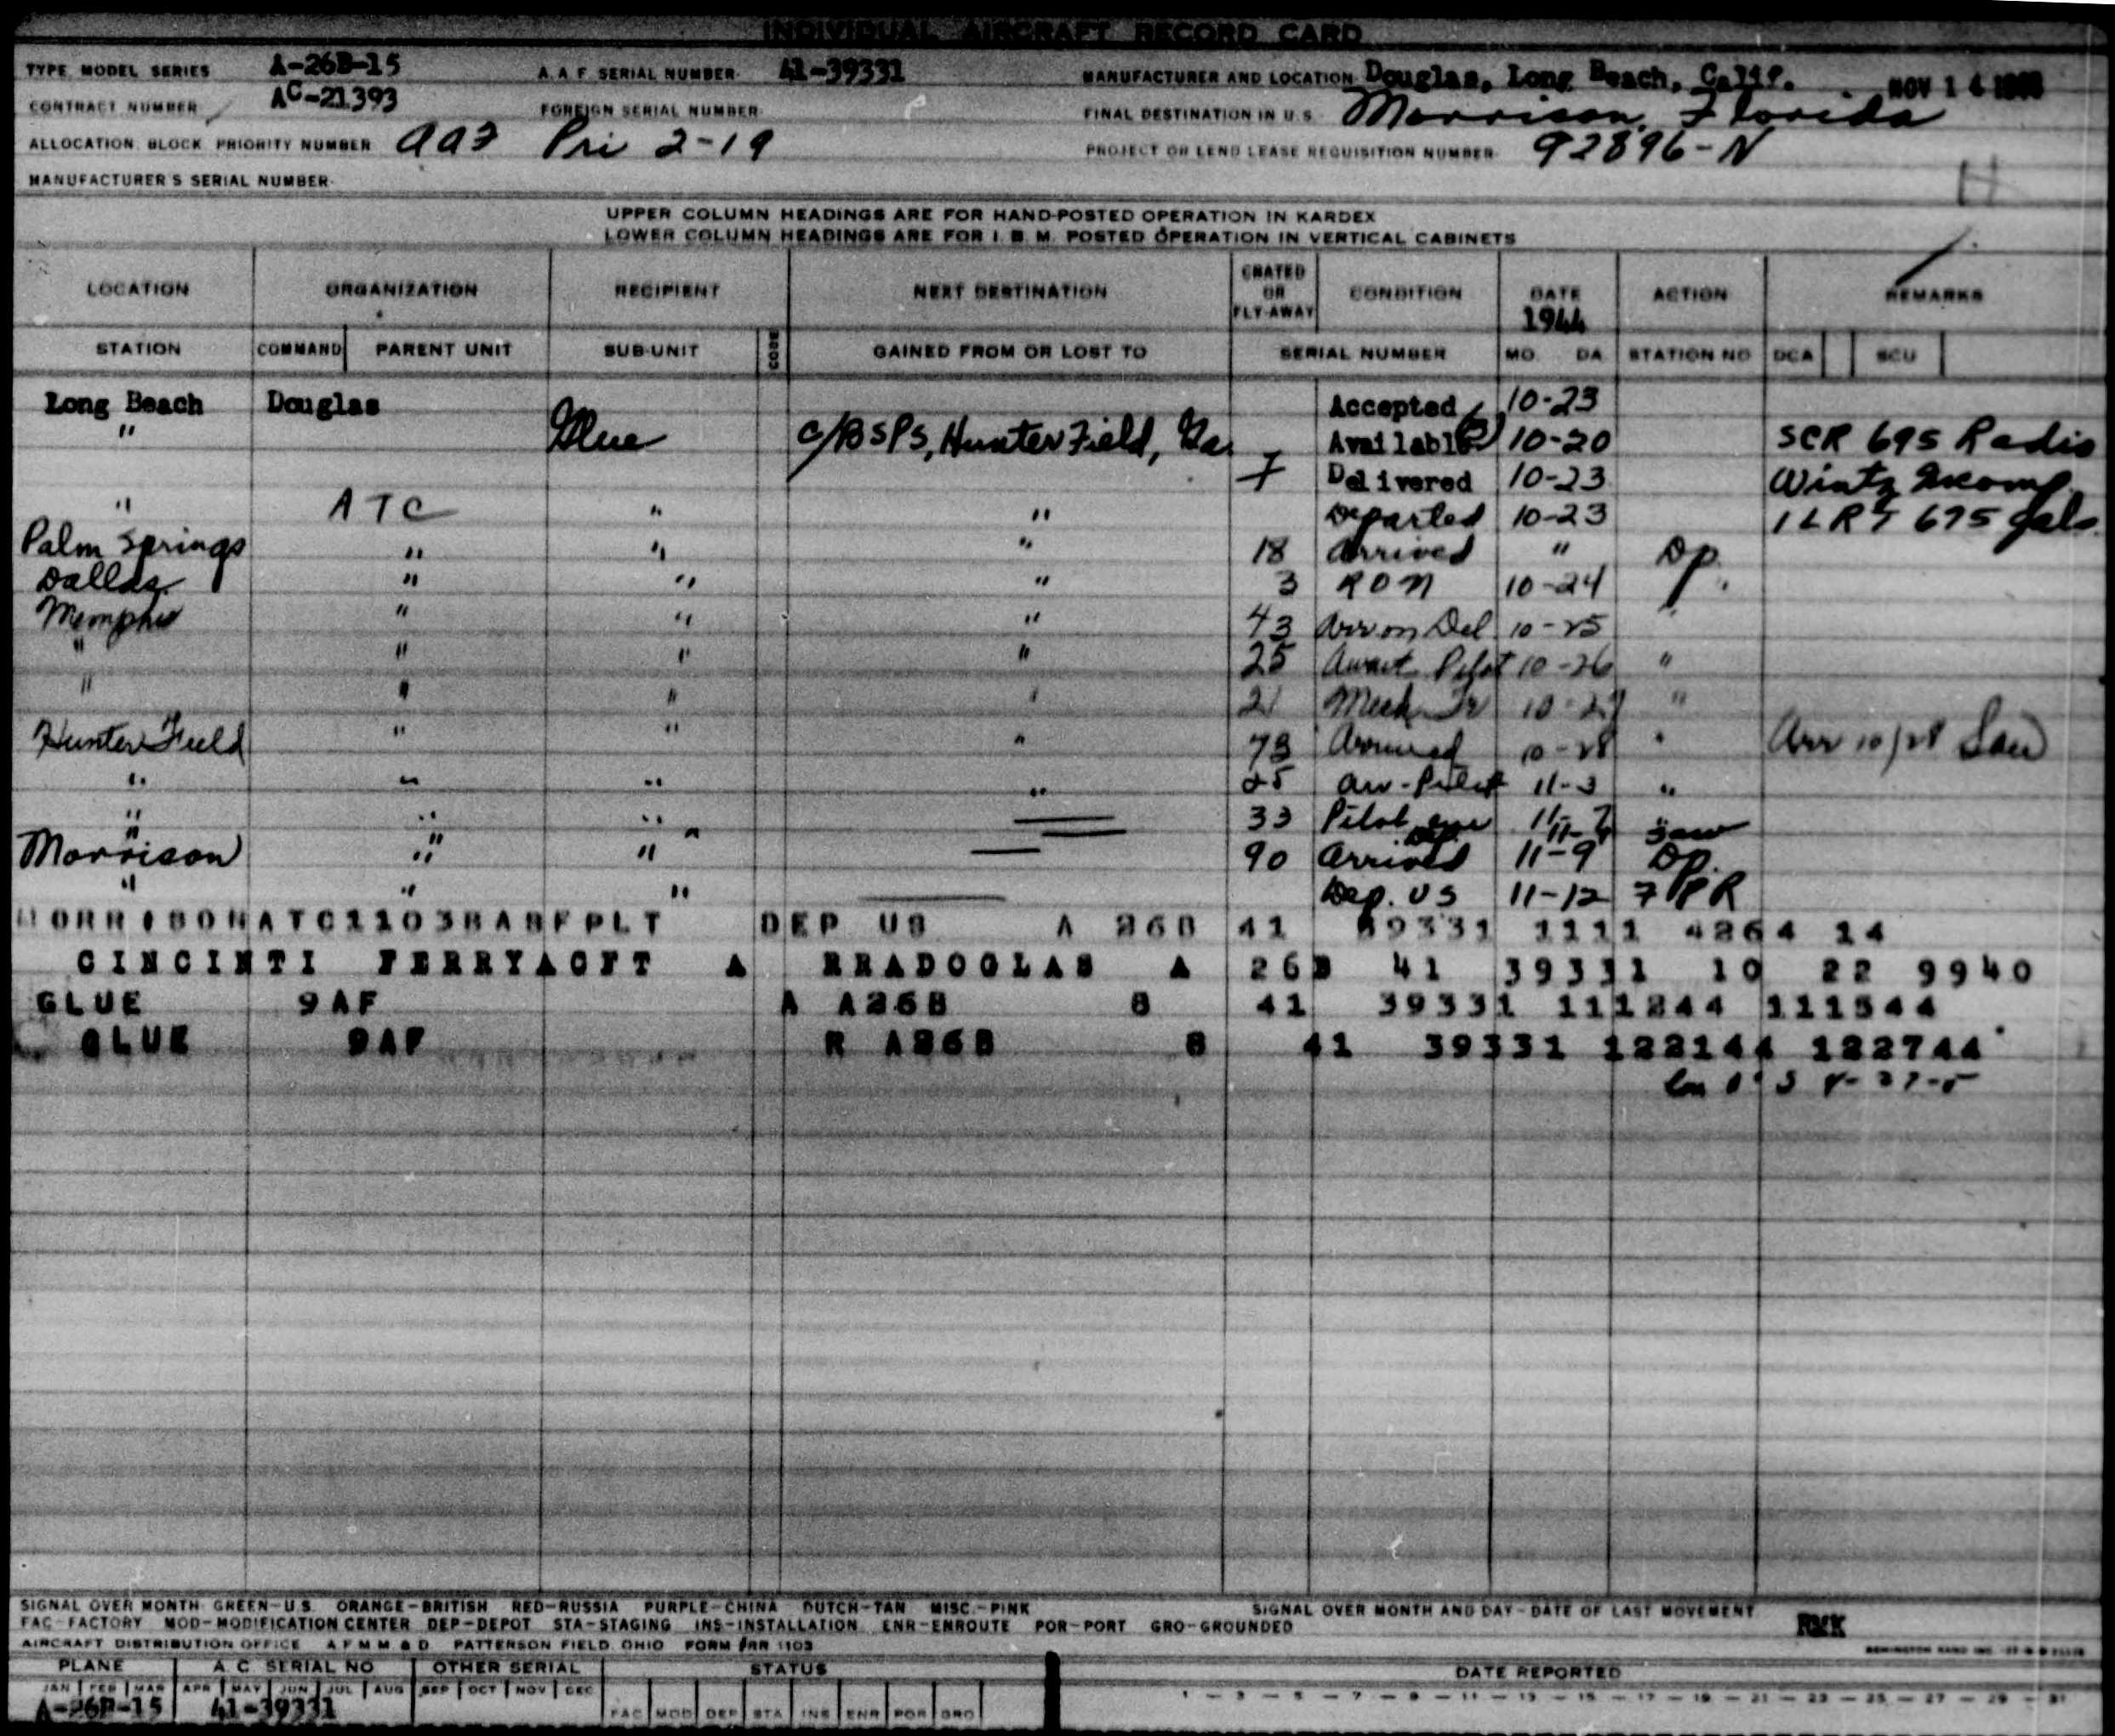 INDIVIDUAL AIRCRAFT RECORD CARD
TYPE MODEL SERIES A-26B-15 A.A.F. SERIAL NUMBER 41-39331 MANUFACTURER AND LOCATION Douglas, Long Beach, Calif. NOV 14
CONTRACT NUMBER AC-21393 FOREIGN SERIAL NUMBER FINAL DESTINATION IN U.S. Morrison, Florida
ALLOCATION BLOCK PRIORITY NUMBER 993 Pri 2-19 PROJECT OR LEND LEASE REQUISITION NUMBER 92896-N
MANUFACTURER'S SERIAL NUMBER
UPPER COLUMN HEADINGS ARE FOR HAND-POSTED OPERATION IN KARDEX
LOWER COLUMN HEADINGS ARE FOR I. B. M. POSTED OPERATION IN VERTICAL CABINETS
LOCATION ORGANIZATION RECIPIENT NEXT DESTINATION CRATED OR FLY-AWAY CONDITION DATE 1944 ACTION REMARKS
STATION COMMAND PARENT UNIT SUB-UNIT CODE GAINED FROM OR LOST TO SERIAL NUMBER MO. DA. STATION NO DCA SCU
Long Beach Douglas Accepted 10-23
" Glue C/BSPS, Hunter Field, Ga. Available 10-20 SCR 695 Radio
7 Delivered 10-23
" ATC " " Departed 10-23 675 gals
Palm Springs " " " 18 Arrived " Dp.
Dallas " " " 3 RON 10-24 "
Memphis " " " 43 Arr on Del 10-25 "
" " " " 25 Await Pilot 10-26 "
" " " " 21 Mech Tr "
Hunter Field " " " 73 Arrived 10-28 " Arr 10/28
" " " " 25 aw-Pilot 11-3 "
" " " 33 Pilot 11-7
Morrison " " 90 Arrived 11-9 Dp.
" " " Dep. US 11-12 7 PR
MORRISONATC1103BASFPLT DEP US A 26B 41 39331 1111 4264 14
CINCINTI FERRYACFT A RRADOGLAS A 26B 41 39331 10 22 9940
GLUE 9AF A A26B 8 41 39331 111244 111544
GLUE 9AF R A26B 8 41 39331 122144 122744
SIGNAL OVER MONTH GREEN-U.S. ORANGE-BRITISH RED-RUSSIA PURPLE-CHINA DUTCH-TAN MISC.-PINK SIGNAL OVER MONTH AND DAY-DATE OF LAST MOVEMENT
FAC-FACTORY MOD-MODIFICATION CENTER DEP-DEPOT STA-STAGING INS-INSTALLATION ENR-ENROUTE POR-PORT GRO-GROUNDED RMK
AIRCRAFT DISTRIBUTION OFFICE A F M M & D PATTERSON FIELD, OHIO FORM #RR 1103
PLANE A C SERIAL NO OTHER SERIAL STATUS DATE REPORTED
JAN FEB MAR APR MAY JUN JUL AUG SEP OCT NOV DEC
A-26B-15 41-39331 FAC MOD DEP STA INS ENR POR GRO 1-3-5-7-9-11-13-15-17-19-21-23-25-27-29-31